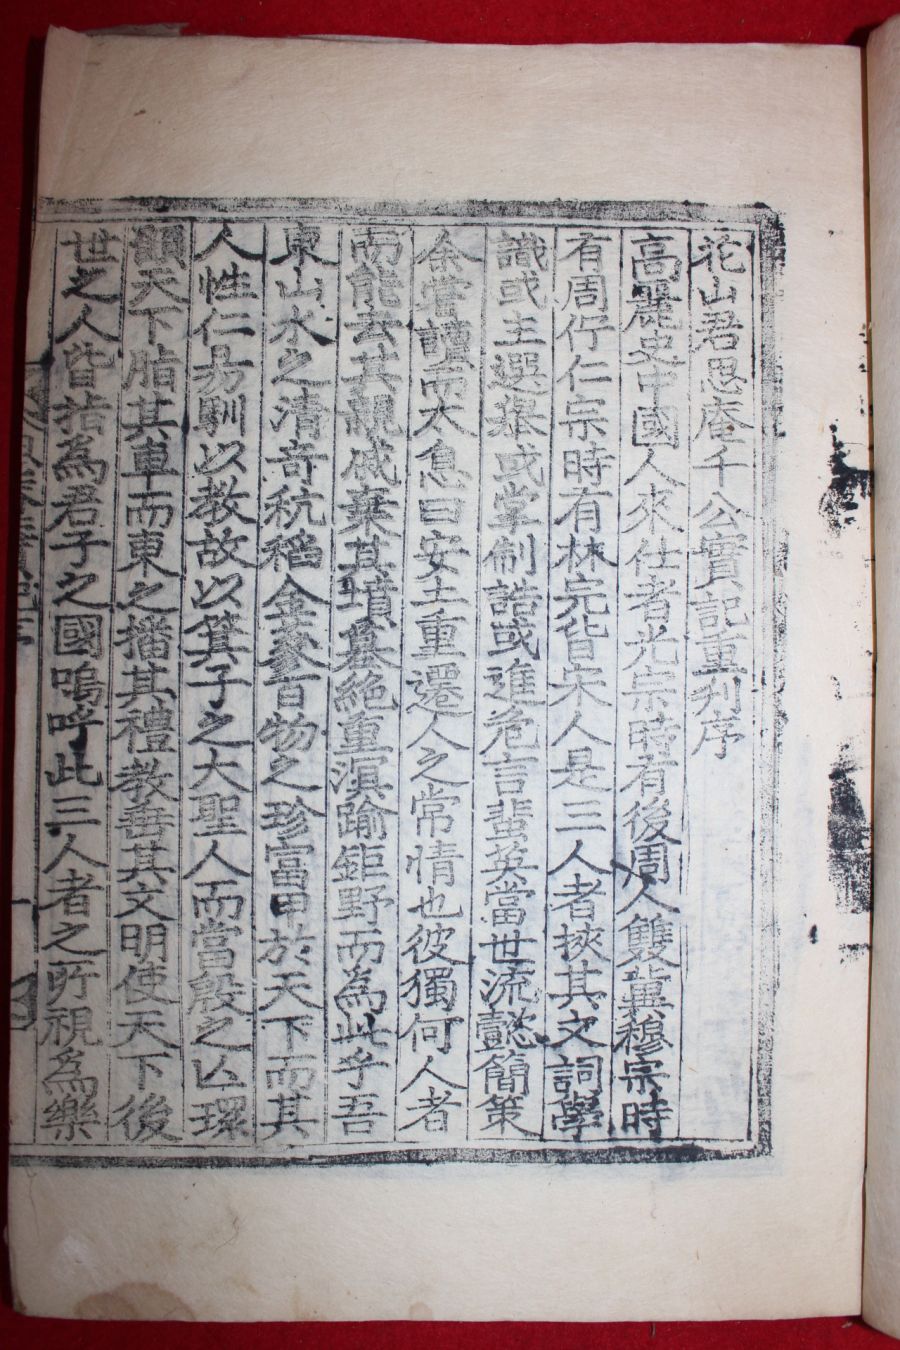 花山君思庵千公實記重刊序
高麗史中國人來仕者光宗時有後周人雙冀穆宗時
有周佇仁宗時有林完皆宋人是三人者挾其文詞學
識或主選擧或掌制誥或進危言蜚英當世流懿簡策
余嘗讀而太息曰安土重遷人之常情也彼獨何人者
而能去其親戚棄其墳墓絶重溟踰鉅野而爲此乎吾
東山水之清奇秔稻金蔘百物之珍富甲於天下而其
人性仁易馴以敎故以箕子之大聖人而當殷之亾環
顧天下脂其車而東之播其禮敎番其文明使天下後
世之人皆指爲君子之國嗚呼此三人者之所視爲樂